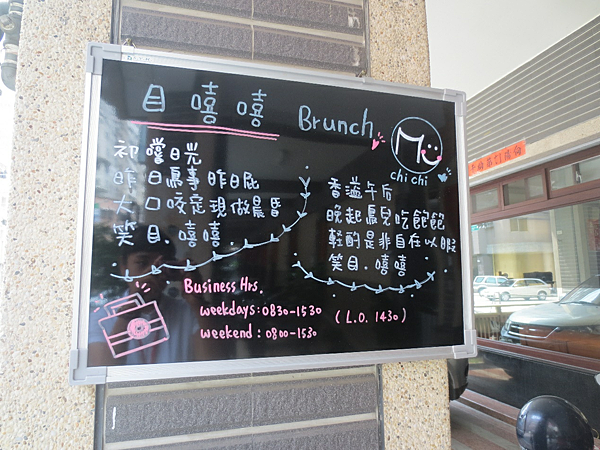 目嘻嘻 Brunch
Mu
chi chi
初嚐日光
昨日鳥事昨日屁
大口咬定現做晨昏
笑目.嘻嘻.
香溢午后
晚起鳥兒吃飽飽
輕酌是非自在以暇
笑目.嘻嘻
Business Hrs.
weekdays:0830-1530 (L.O. 1430)
weekend:0800-1530